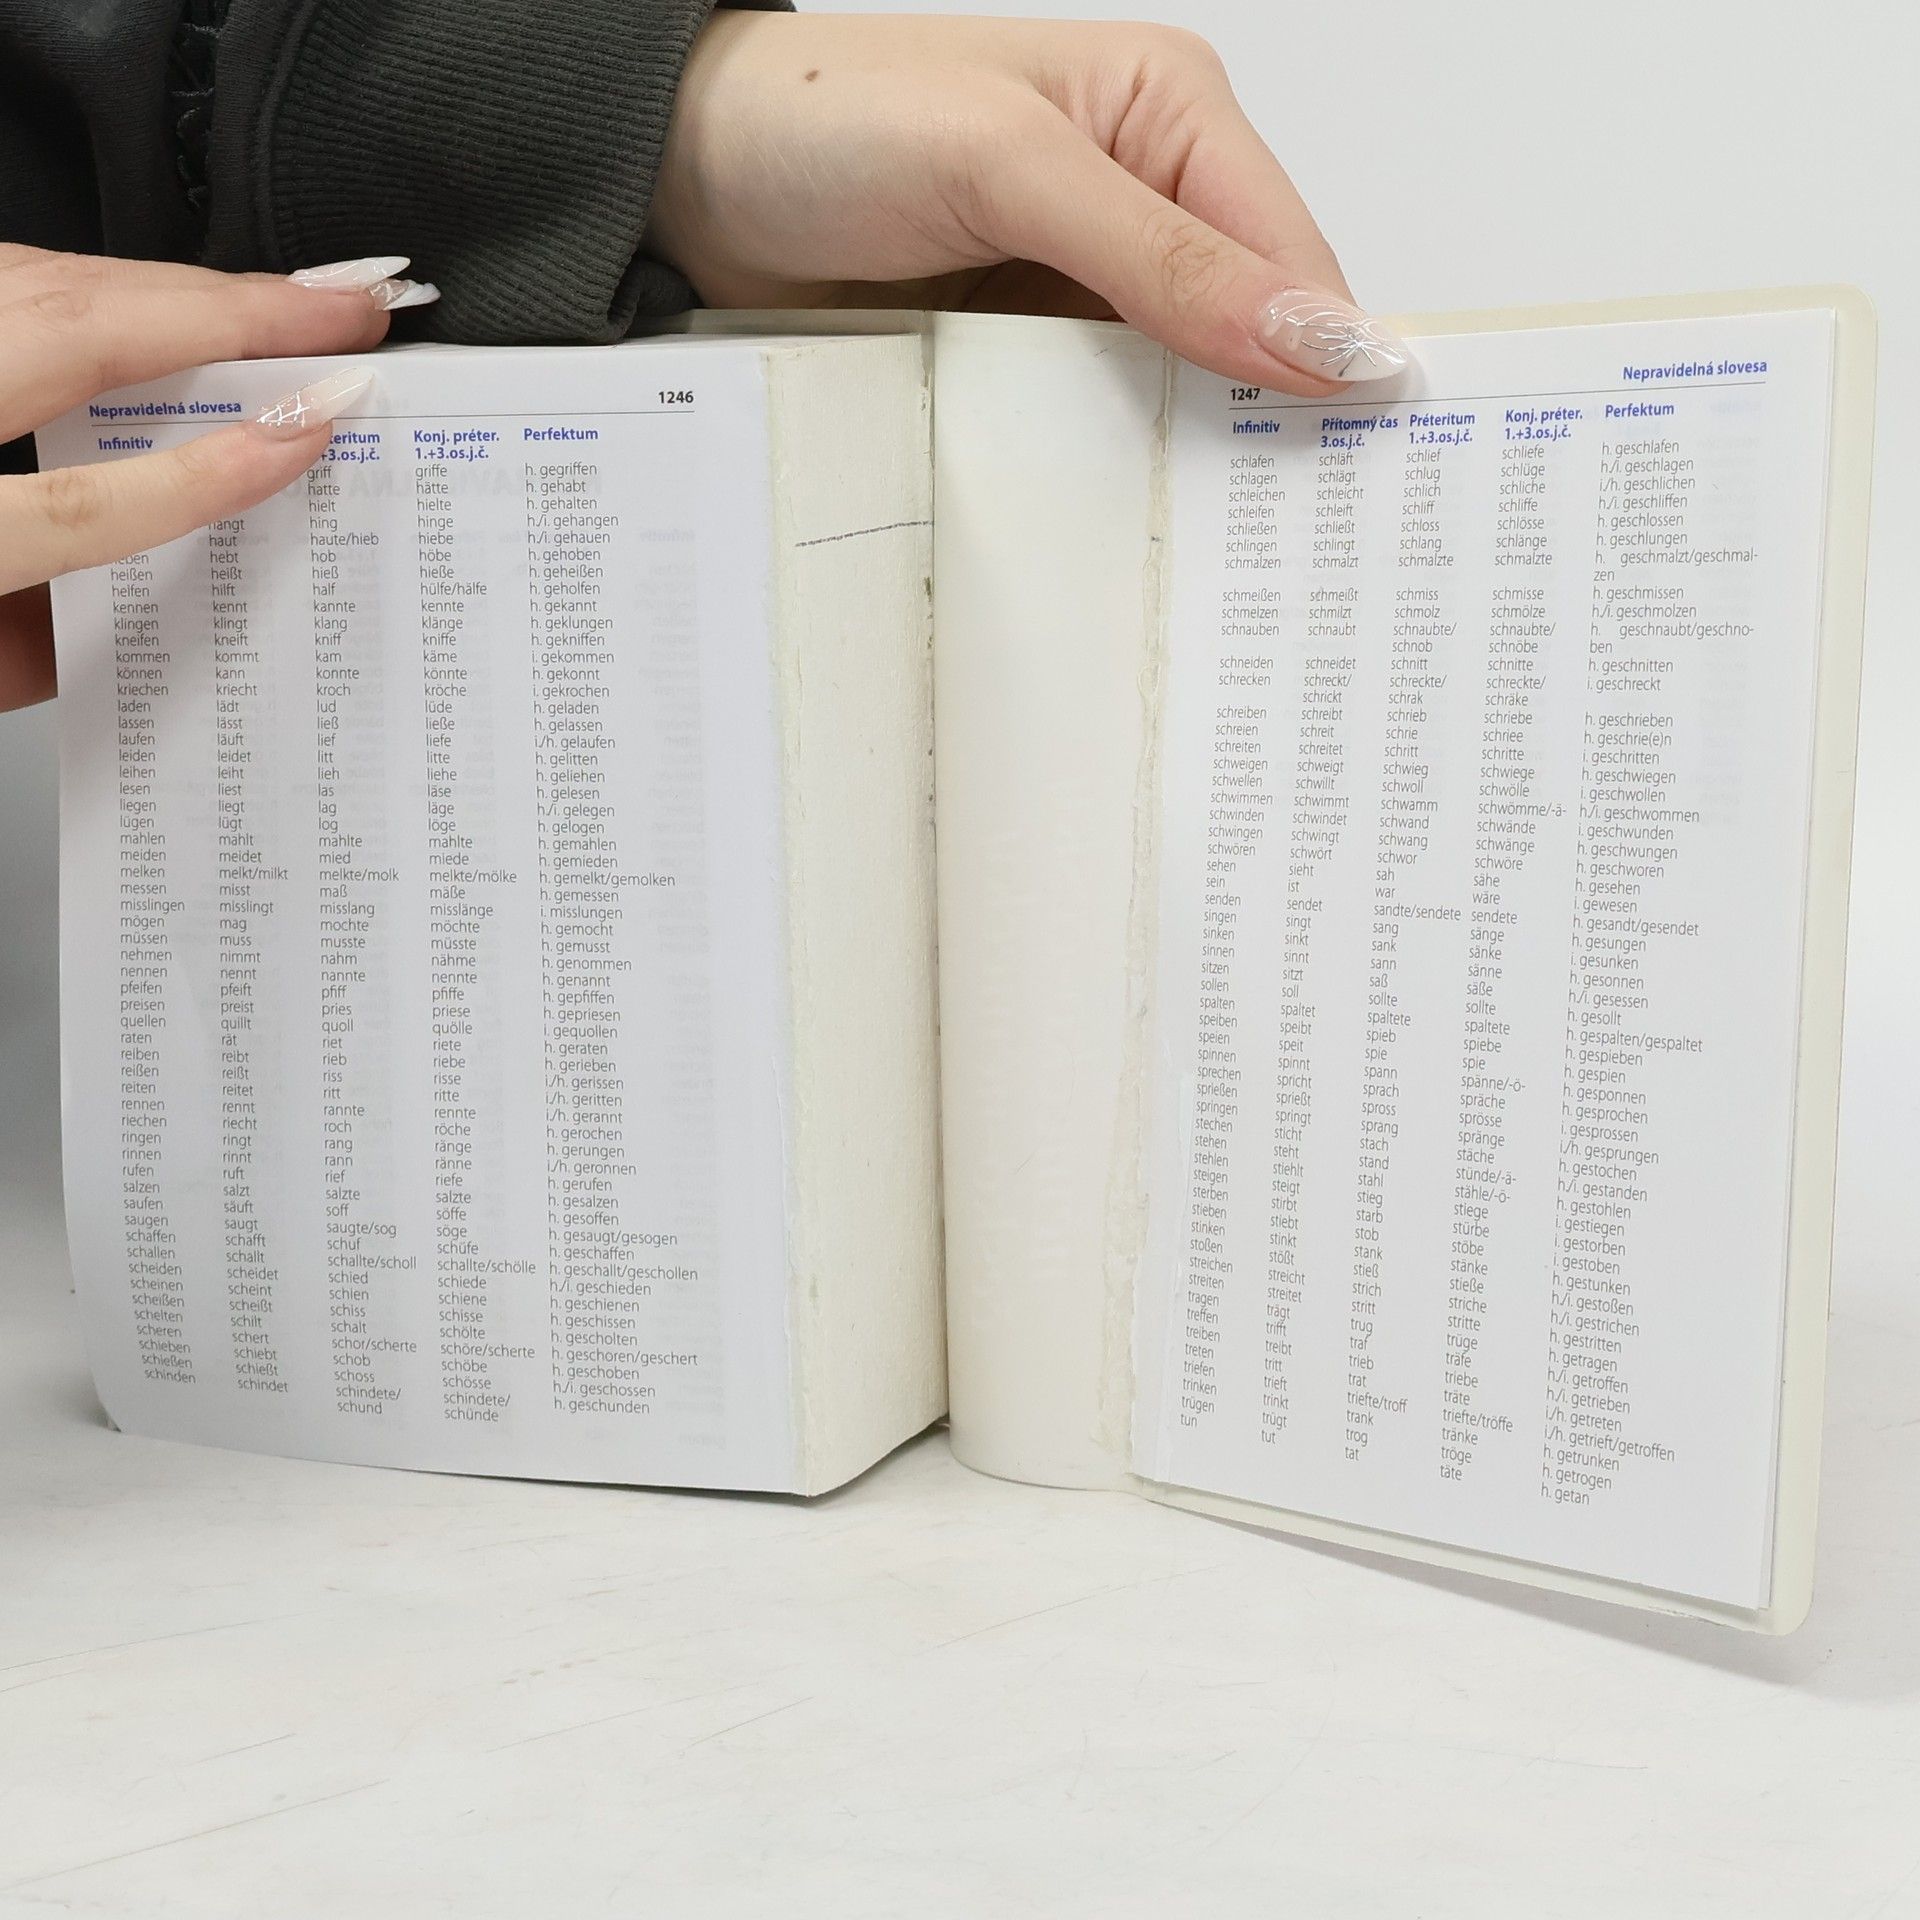 Nepravidelná slovesa 1246
Infinitiv Konj. préter. Perfektum
1.+3.os.j.č.
griff griffe h. gegriffen
hatte hätte h. gehabt
hielt hielte h. gehalten
hängt hing hinge h./i. gehangen
haut haute/hieb hiebe h./i. gehauen
hebt hob höbe h. gehoben
heißen heißt hieß hieße h. geheißen
helfen hilft half hülfe/hälfe h. geholfen
kennen kennt kannte kennte h. gekannt
klingen klingt klang klänge h. geklungen
kneifen kneift kniff kniffe h. gekniffen
kommen kommt kam käme i. gekommen
können kann konnte könnte h. gekonnt
kriechen kriecht kroch kröche i. gekrochen
laden lädt lud lüde h. geladen
lassen lässt ließ ließe h. gelassen
laufen läuft lief liefe i./h. gelaufen
leiden leidet litt litte h. gelitten
leihen leiht lieh liehe h. geliehen
lesen liest las läse h. gelesen
liegen liegt lag läge h./i. gelegen
lügen lügt log löge h. gelogen
mahlen mahlt mahlte mahlte h. gemahlen
meiden meidet mied miede h. gemieden
melken melkt/milkt melkte/molk melkte/mölke h. gemelkt/gemolken
messen misst maß mäße h. gemessen
misslingen misslingt misslang misslänge i. misslungen
mögen mag mochte möchte h. gemocht
müssen muss musste müsste h. gemusst
nehmen nimmt nahm nähme h. genommen
nennen nennt nannte nennte h. genannt
pfeifen pfeift pfiff pfiffe h. gepfiffen
preisen preist pries priese h. gepriesen
quellen quillt quoll quölle i. gequollen
raten rät riet riete h. geraten
reiben reibt rieb riebe h. gerieben
reißen reißt riss risse i./h. gerissen
reiten reitet ritt ritte i./h. geritten
rennen rennt rannte rennte i./h. gerannt
riechen riecht roch röche h. gerochen
ringen ringt rang ränge h. gerungen
rinnen rinnt rann ränne i./h. geronnen
rufen ruft rief riefe h. gerufen
salzen salzt salzte salzte h. gesalzen
saufen säuft soff söffe h. gesoffen
saugen saugt saugte/sog söge h. gesaugt/gesogen
schaffen schafft schuf schüfe h. geschaffen
schallen schallt schallte/scholl schallte/schölle h. geschallt/geschollen
scheiden scheidet schied schiede h./i. geschieden
scheinen scheint schien schiene h. geschienen
scheißen scheißt schiss schisse h. geschissen
schelten schilt schalt schölte h. gescholten
scheren schert schor/scherte schöre/scherte h. geschoren/geschert
schieben schiebt schob schöbe h. geschoben
schießen schießt schoss schösse h./i. geschossen
schinden schindet schindete/ schindete/ h. geschunden
schund schünde
1247 Nepravidelná slovesa
Infinitiv Přítomný čas Préteritum Konj. préter. Perfektum
3.os.j.č. 1.+3.os.j.č. 1.+3.os.j.č.
schlafen schläft schlief schliefe h. geschlafen
schlagen schlägt schlug schlüge h./i. geschlagen
schleichen schleicht schlich schliche i./h. geschlichen
schleifen schleift schliff schliffe h./i. geschliffen
schließen schließt schloss schlösse h. geschlossen
schlingen schlingt schlang schlänge h. geschlungen
schmalzen schmalzt schmalzte schmalzte h. geschmalzt/geschmal-
zen
schmeißen schmeißt schmiss schmisse h. geschmissen
schmelzen schmilzt schmolz schmölze h./i. geschmolzen
schnauben schnaubt schnaubte/ schnaubte/ h. geschnaubt/geschno-
schnob schnöbe ben
schneiden schneidet schnitt schnitte h. geschnitten
schrecken schreckt/ schreckte/ schreckte/ i. geschreckt
schrickt schrak schräke
schreiben schreibt schrieb schriebe h. geschrieben
schreien schreit schrie schriee h. geschrie(e)n
schreiten schreitet schritt schritte i. geschritten
schweigen schweigt schwieg schwiege h. geschwiegen
schwellen schwillt schwoll schwölle i. geschwollen
schwimmen schwimmt schwamm schwömme/-ä- h./i. geschwommen
schwinden schwindet schwand schwände i. geschwunden
schwingen schwingt schwang schwänge h. geschwungen
schwören schwört schwor schwöre h. geschworen
sehen sieht sah sähe h. gesehen
sein ist war wäre i. gewesen
senden sendet sandte/sendete sendete h. gesandt/gesendet
singen singt sang sänge h. gesungen
sinken sinkt sank sänke i. gesunken
sinnen sinnt sann sänne h. gesonnen
sitzen sitzt saß säße h./i. gesessen
sollen soll sollte sollte h. gesollt
spalten spaltet spaltete spaltete h. gespalten/gespaltet
speiben speibt spieb spiebe h. gespieben
speien speit spie spie h. gespien
spinnen spinnt spann spänne/-ö- h. gesponnen
sprechen spricht sprach spräche h. gesprochen
sprießen sprießt spross sprösse i. gesprossen
springen springt sprang spränge i./h. gesprungen
stechen sticht stach stäche h. gestochen
stehen steht stand stünde/-ä- h./i. gestanden
stehlen stiehlt stahl stähle/-ö- h. gestohlen
steigen steigt stieg stiege i. gestiegen
sterben stirbt starb stürbe i. gestorben
stieben stiebt stob stöbe i. gestoben
stinken stinkt stank stänke h. gestunken
stoßen stößt stieß stieße h./i. gestoßen
streichen streicht strich striche h./i. gestrichen
streiten streitet stritt stritte h. gestritten
tragen trägt trug trüge h. getragen
treffen trifft traf träfe h./i. getroffen
treiben treibt trieb triebe h./i. getrieben
treten tritt trat träte i./h. getreten
triefen trieft triefte/troff triefte/tröffe i./h. getrieft/getroffen
trinken trinkt trank tränke h. getrunken
trügen trügt trog tröge h. getrogen
tun tut tat täte h. getan